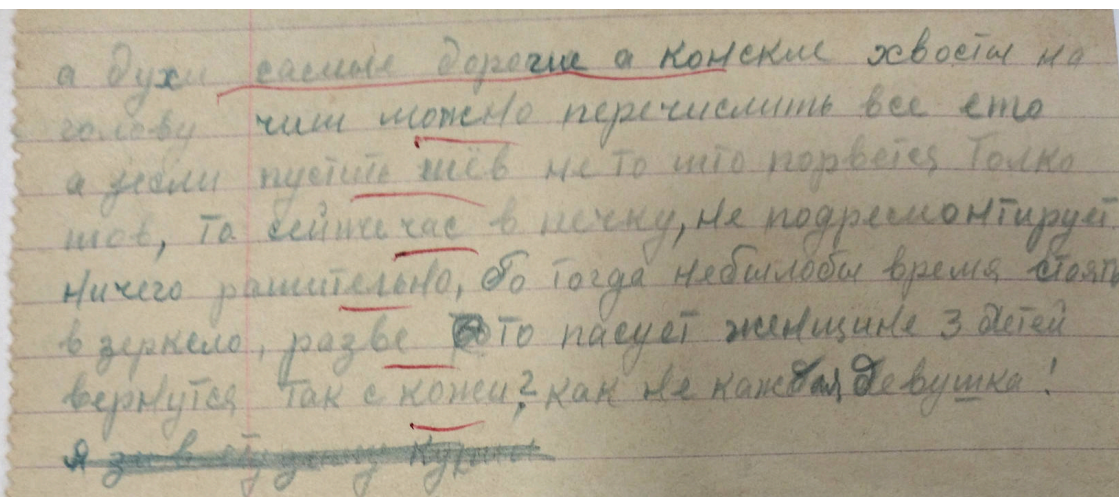 а духи самые дорогие а конские хвосты на
голову чиш можно перечислить все ето
а если пустить шёв не то што порвется Толко
шов, то сейже час в печку, не подремонтирует
ничего рашительно, бо тогда небылобы время стоять
в зеркело, разве то пасует женщине 3 детей
вернутся так с кожи? как не каждая девушка!